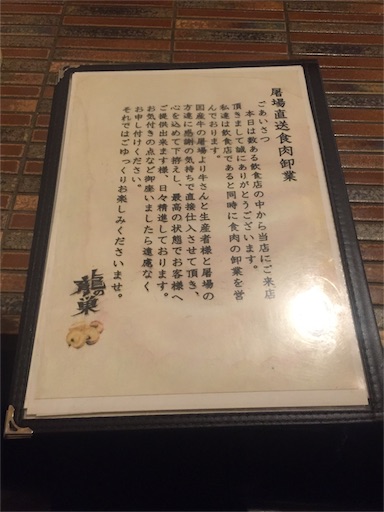 屠場直送食肉卸業
ごあいさつ
本日は数ある飲食店の中から当店にご来店
頂きまして誠にありがとうございます。
私達は飲食店であると同時に食肉の卸業を営
んでおります。
国産牛の屠場より牛さんと生産者様と屠場の
方達に感謝の気持ちで直接仕入させて頂き、
心を込めて下拵えし、最高の状態でお客様へ
ご提供出来ます様、日々精進しております。
お気付きの点など御座いましたら遠慮なく
お申し付けください。
それではごゆっくりお楽しみくださいませ。
龍の巣